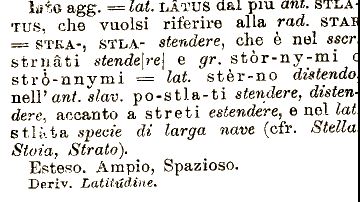 lato agg. = lat. LÂTUS dal più ant. STLA-
TUS, che vuolsi riferire alla rad. STAR
= STRA-, STLA- stendere, che è nel sscr.
strnâti stende[re] e gr. stòr-ny-mi o
strô-nnymi = lat. stèr-no distendo,
nell' ant. slav. po-stla-ti stendere, disten-
dere, accanto a streti estendere, e nel lat.
stlàta specie di larga nave (cfr. Stella,
Stoia, Strato).
Esteso. Ampio, Spazioso.
Deriv. Latitúdine.